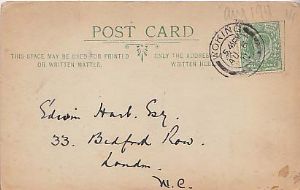 POST CARD
THIS SPACE MAY BE USED FOR PRINTED
OR WRITTEN MATTER.
ONLY THE ADDRESS
WRITTEN HE
WOKING
Edwin Hart. Esq.
33. Bedford Row.
London.
W.C.